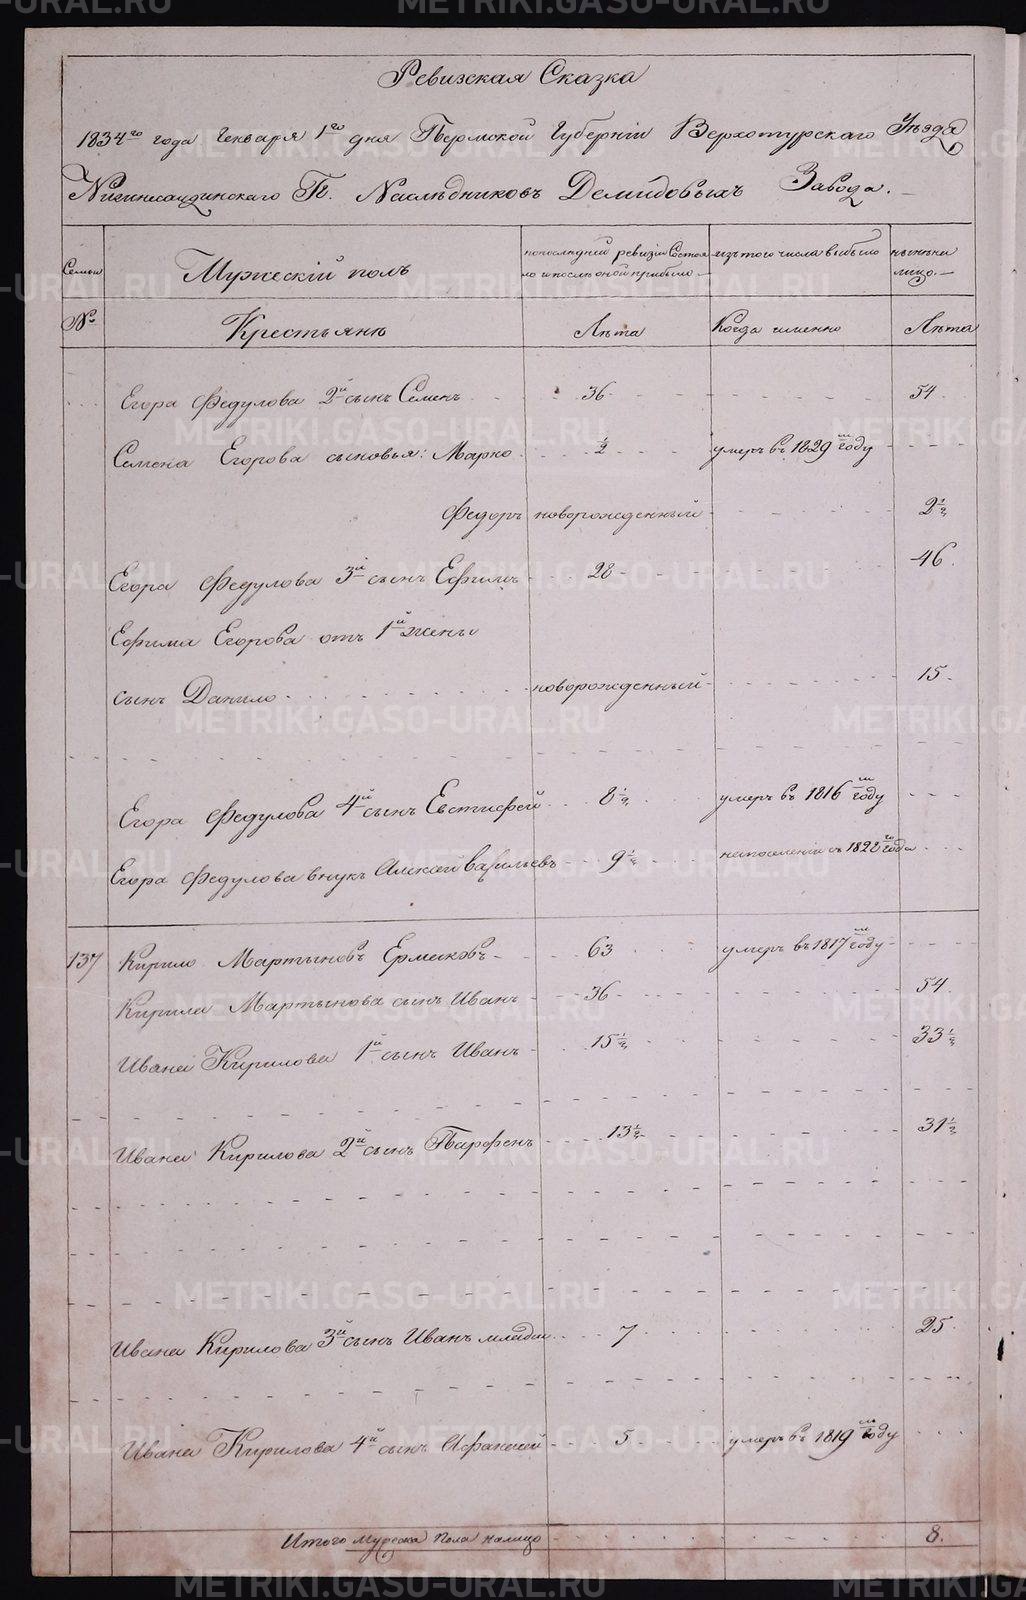 Ревизская Сказка
1834го года Генваря 1го дня Пермской Губернiи Верхотурскаго Уѣзда
Нижнесалдинскаго Гг. Наслѣдниковъ Демидовыхъ Завода.
Семьи Мужескiй полъ попослѣдней ревизiи Состоя изъ того числа выбыло нынѣ на
ло и послѣ оной прибыло лицо.
№ Крестьянѣ Лѣта Когда именно Лѣта
Егора Федулова 2й сынъ Семенъ 36 54.
Семена Егорова сыновья: Марко 4 умеръ въ 1829м году
Федоръ новорожденный 2½
Егора Федулова 3й сынъ Ефимъ 28 46.
Ефима Егорова отъ 1й жены
сынъ Данило новорожденный 15.
Егора Федулова 4й сынъ Евстифей 8½ умеръ въ 1816м году
Егора Федулова внукъ Алексей Васильевъ 9½ на поселенiи съ 1822го года
137 Кирило Мартыновъ Ермаковъ 63 умеръ въ 1817м году
Кирила Мартынова сынъ Иванъ 36 54
Ивана Кирилова 1й сынъ Иванъ 15½ 33½
Ивана Кирилова 2й сынъ Парфенъ 13½ 31½
Ивана Кирилова 3й сынъ Иванъ младш. 7 25.
Ивана Кирилова 4й сынъ Афанасей 5 умеръ въ 1819м году
Итого мужеска пола налицо 8.
METRIKI.GASO-URAL.RU